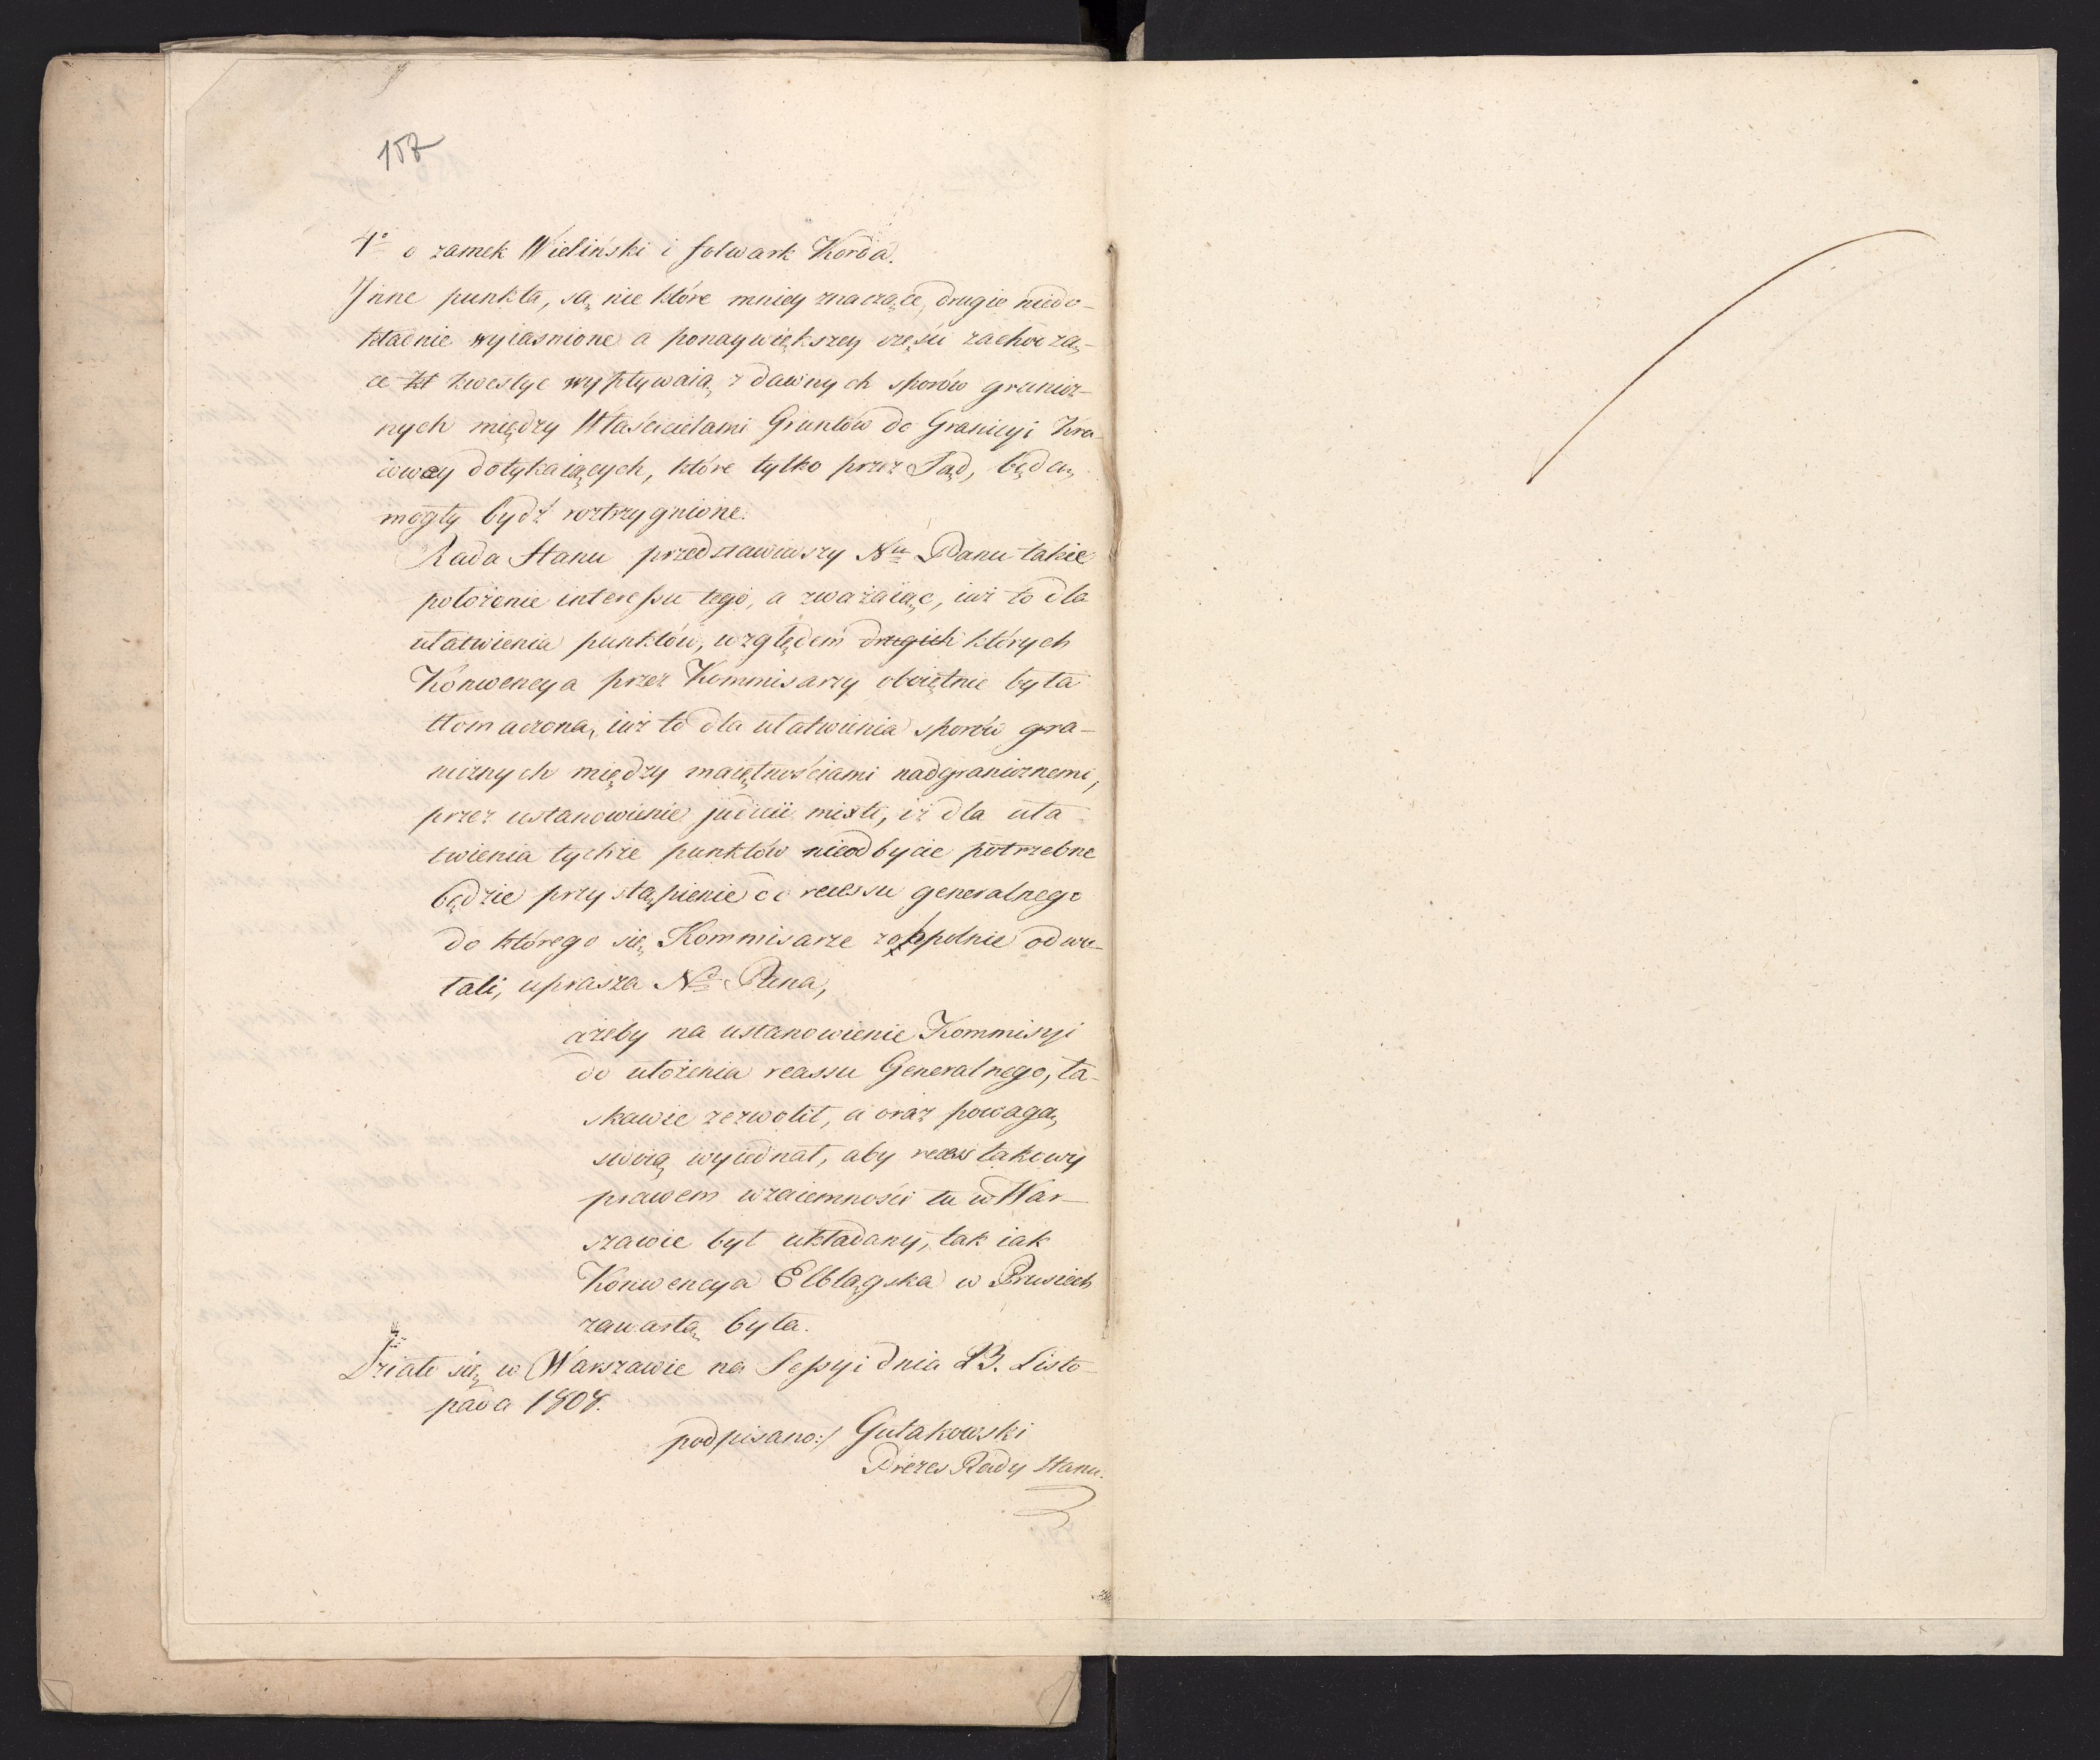 157
4º o zamek Wieliński i folwark Korda.
Jnne punkta, są nie które mniey znaczące, drugie niedo-
kładnie wyiasnione a ponaywiększey części zachodzą-
ce kwestye wypływaią z dawnych sporów granicz-
nych między Właścicielami Gruntów do Granicyi Kra-
iowey dotykaiących, które tylko przez Sąd, będą
mogły bydź roztrzygnione.
Rada Stanu przedstawiwszy Nu Panu takie
położenie interessu tego, a zważaiąc, iuż to dla
ułatwienia punktów, względem drugich których
Konwencya przez Kommisarzy oboiętnie była
tłomaczona, iuż to dla ułatwienia sporów gra-
nicznych między maiętnościami nadgranicznemi,
przez ustanowienie judicii mixti, iż dla uła
twienia tychże punktów nieodbycie potrzebne
będzie przystąpienie do recessu generalnego
do którego się Kommisarze zobpolnie odwo-
łali, uprasza Nº Pana,
ażeby na ustanowienie Kommisyi
do ułożenia reassu Generalnego, ła-
skawie zezwolił, a oraz powagą
swoią wyiednał, aby recess takowy
prawem wzaiemności tu w War-
szawie był układany, tak iak
Konwencya Elblągska w Prusiech
zawartą była.
Działo się w Warszawie na Sessyi dnia 23. Listo-
pada 1808.
podpisano:/ Gutakowski
Prezes Rady Stanu.